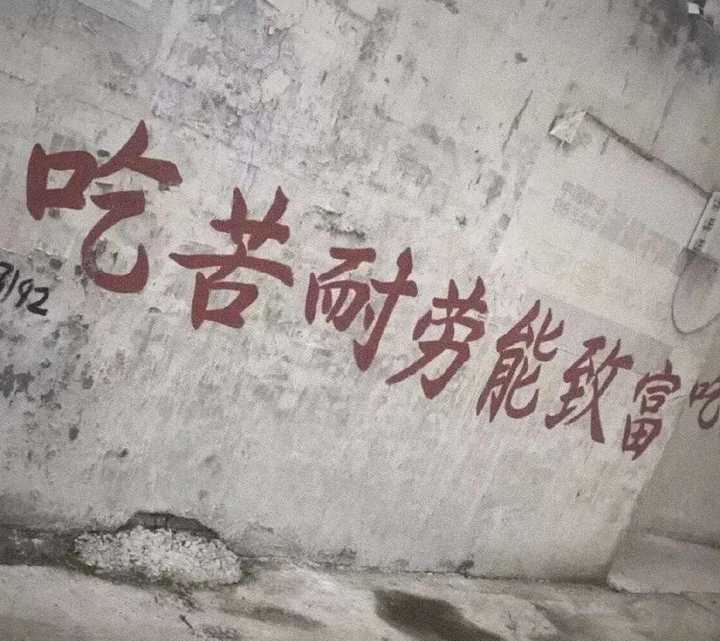 吃苦耐劳能致富吃
3192